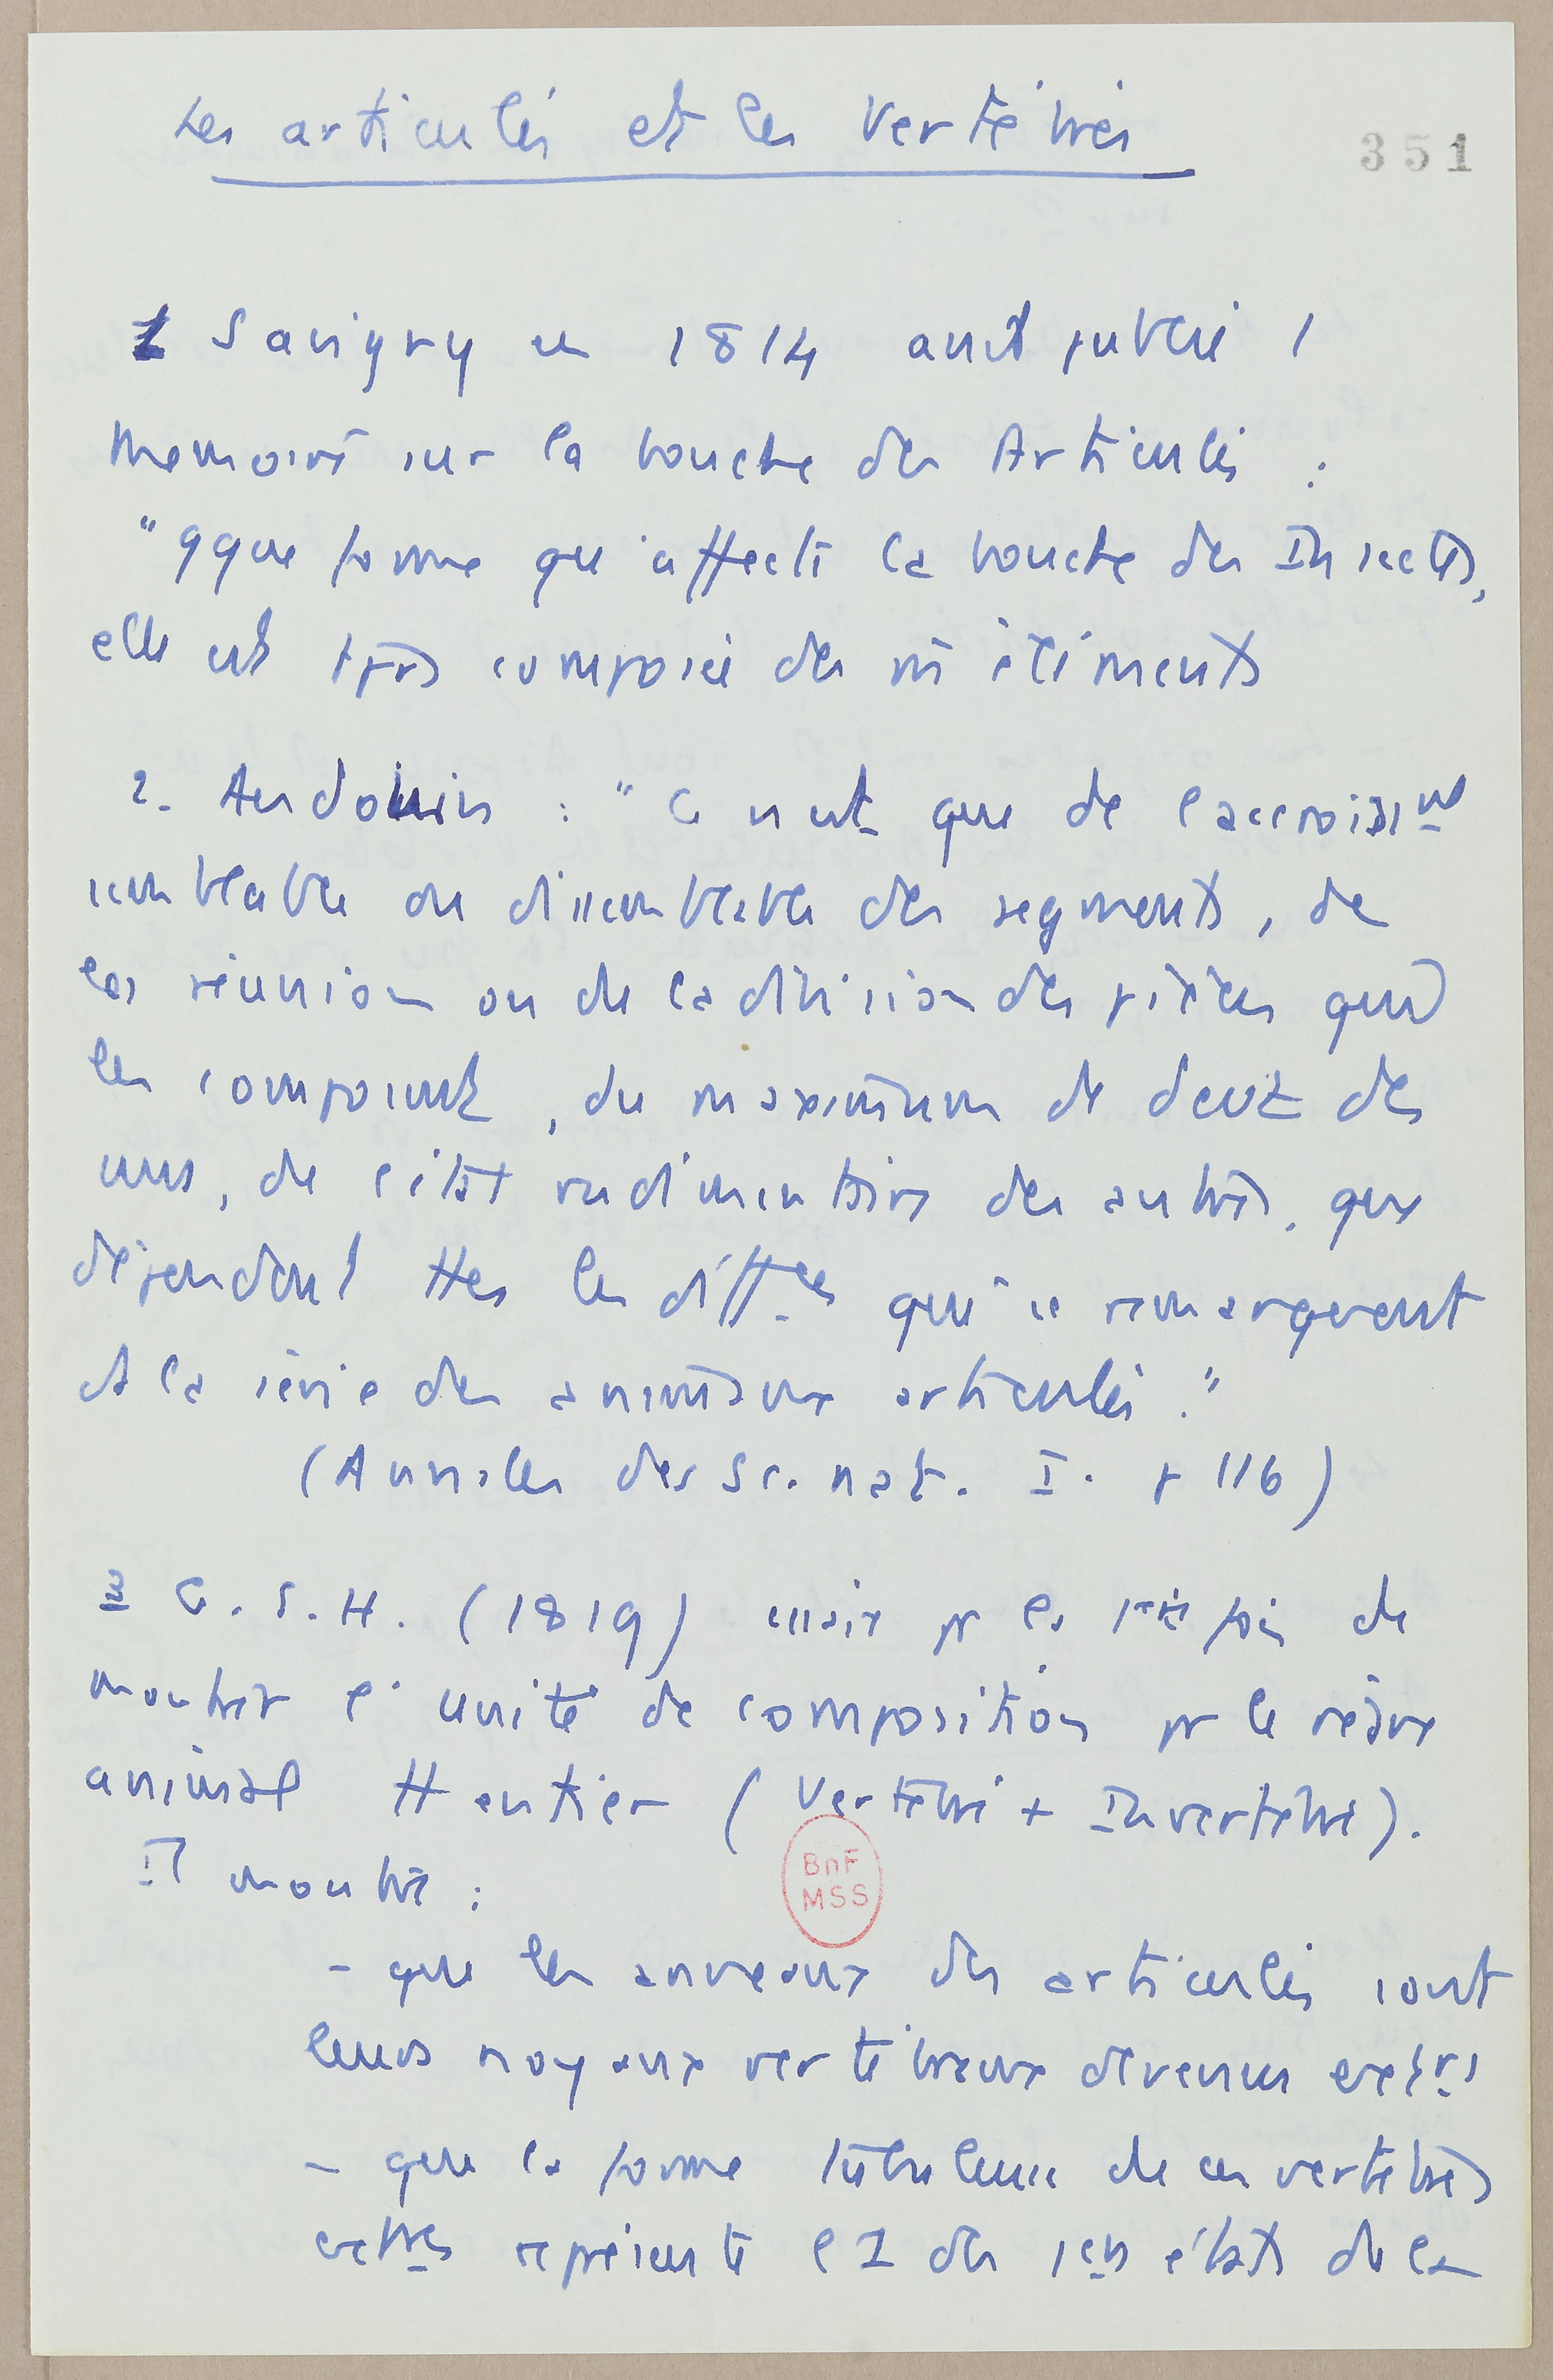 Les articulés et les Vertébrés
351
1 Savigny en 1814 avait publié 1
Memoire sur la bouche des Articulés :
"qque forme qu'affecte la bouche des Insectes,
elle est tjrs composée des m̄ éléments
2. Audouin : "C n'est que de l'accroisst
semblable ou dissemblable des segments, de
la réunion ou de la division des pièces qui
les composent, du maximum de devt des
uns, de l'état rudimentaire des autres, que
dépendent ttes les diffces qui se remarquent
ds la série des animaux articulés."
(Annales des Sc. nat. I. p 116)
3 G. S. H. (1819) essaie pr la 1ère fois de
montrer l'unité de composition pr le règne
animal tt entier (Vertébré + Invertébré).
Il montre :
BnF
MSS
- que les anneaux des articulés sont
leurs noyaux vertébraux devenus extrs
- que la forme tubuleuse de ces vertèbres
extres représente l'1 des 1ers états de la